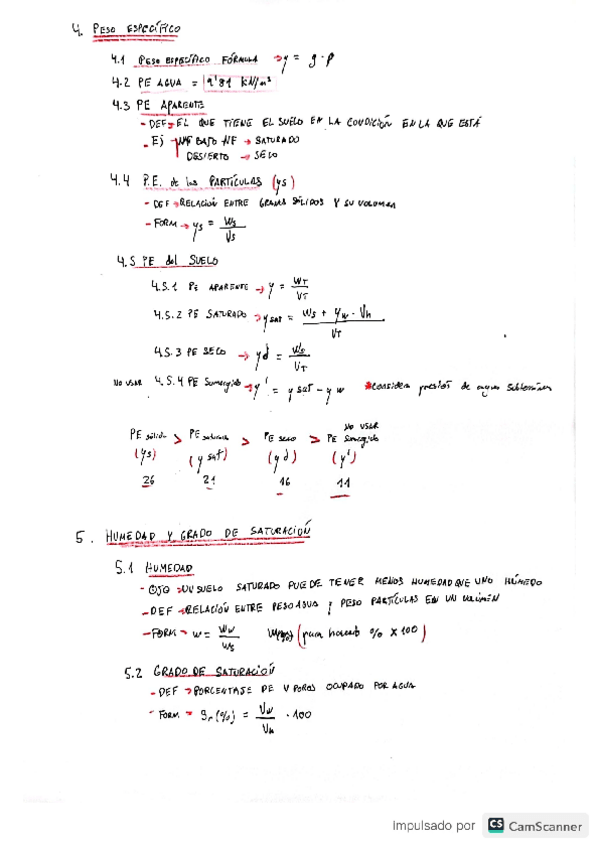 4. PESO ESPECÍFICO
4.1 PESO ESPECÍFICO FÓRMULA → γ = g · ρ
4.2 PE AGUA = 9'81 kN/m³
4.3 PE APARENTE
- DEF → EL QUE TIENE EL SUELO EN LA CONDICIÓN EN LA QUE ESTÁ
- EJ → BAJO NF → SATURADO
DESIERTO → SECO
4.4 P.E. de las PARTÍCULAS (γs)
- DEF → RELACIÓN ENTRE GRANOS SÓLIDOS Y SU VOLUMEN
- FORM → γs = Ws / Vs
4.5 PE del SUELO
4.5.1 PE APARENTE → γ = WT / VT
4.5.2 PE SATURADO → γsat = Ws + γw · Vh / VT
4.5.3 PE SECO → γd = Ws / VT
NO USAR 4.5.4 PE Sumergido → γ' = γsat - γw *considera presión de aguas subterráneas
NO USAR
PE sólido > PE saturado > PE seco > PE Sumergido
(γs) (γsat) (γd) (γ')
26 21 16 11
5. HUMEDAD Y GRADO DE SATURACIÓN
5.1 HUMEDAD
- OJO → UN SUELO SATURADO PUEDE TENER MENOS HUMEDAD QUE UNO HÚMEDO
- DEF → RELACIÓN ENTRE PESO AGUA Y PESO PARTÍCULAS EN UN VOLUMEN
- FORM → w = Ww / Ws W(%) (para hacerlo % x 100)
5.2 GRADO DE SATURACIÓN
- DEF → PORCENTAJE DE V POROS OCUPADO POR AGUA
- FORM → Sr (%) = Vw / Vh · 100
Impulsado por CS CamScanner